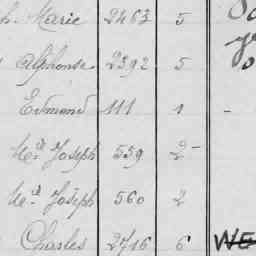 h. Marie 2463 5
Alphonse 2392 5
Edmond 111 1 -
Md Joseph 559 2 -
Md Joseph 560 2
Charles 2716 6 WE